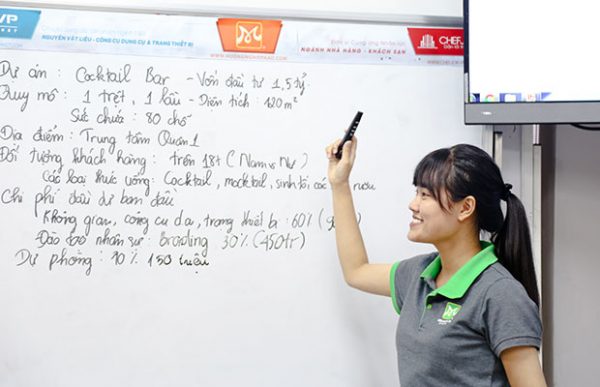 VP
NGUYÊN VẬT LIỆU - CÔNG CỤ DỤNG CỤ & TRANG THIẾT BỊ
WWW.HUONGNGHIEPAAU.COM
NGÀNH NHÀ HÀNG - KHÁCH SẠN
CHEF
Dự án : Cocktail Bar - Vốn đầu tư 1,5 tỷ
Quy mô : 1 trệt, 1 lầu - Diện tích : 120 m²
Sức chứa : 80 chỗ
Địa điểm : Trung tâm Quận 1
Đối tượng khách hàng : trên 18t (Nam vs Nữ)
Các loại thức uống : Cocktail, mocktail, sinh tố, các rượu
Chi phí đầu tư ban đầu
Không gian, công cụ dụ, trang thiết bị : 60%
Đào tạo nhân sự : Branding 30% (450tr)
Dự phòng : 10% 150 triệu